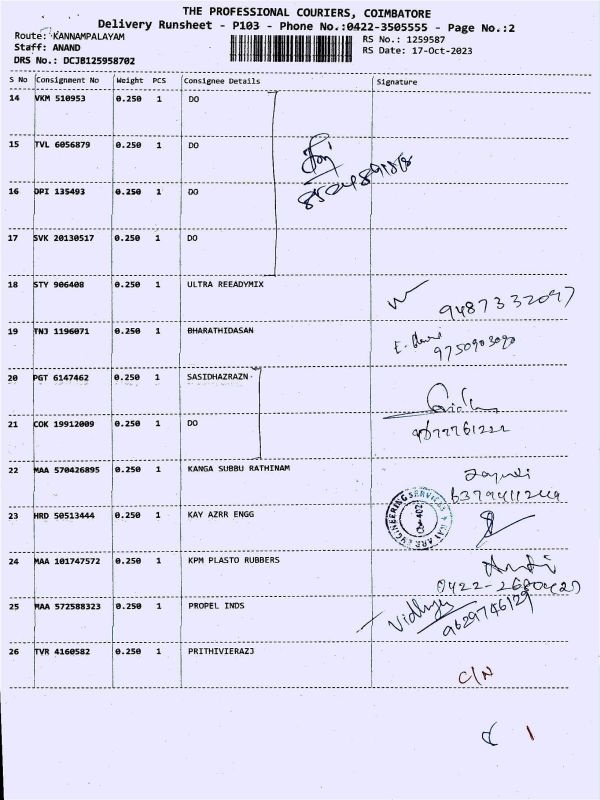 THE PROFESSIONAL COURIERS, COIMBATORE
Delivery Runsheet - P103 - Phone No.:0422-3505555 - Page No.:2
Route: KANNAMPALAYAM
RS No.: 1259587
Staff: ANAND
RS Date: 17-Oct-2023
DRS No.: DCJB125958702
S No Consignment No Weight PCS Consignee Details Signature
14 VKM 510953 0.250 1 DO
15 TVL 6056879 0.250 1 DO
16 DPI 135493 0.250 1 DO
17 SVK 20130517 0.250 1 DO
18 STY 906408 0.250 1 ULTRA REEADYMIX
9487332047
19 TNJ 1196071 0.250 1 BHARATHIDASAN
9750903090
20 PGT 6147462 0.250 1 SASIDHAZRAZN
21 COK 19912009 0.250 1 DO
22 MAA 570426895 0.250 1 KANGA SUBBU RATHINAM
23 HRD 50513444 0.250 1 KAY AZRR ENGG
ENGINEERING SERVICES * KAY ARR
24 MAA 101747572 0.250 1 KPM PLASTO RUBBERS
25 MAA 572588323 0.250 1 PROPEL INDS
Vidhya
9629746129
26 TVR 4160582 0.250 1 PRITHIVIERAZJ
C/N